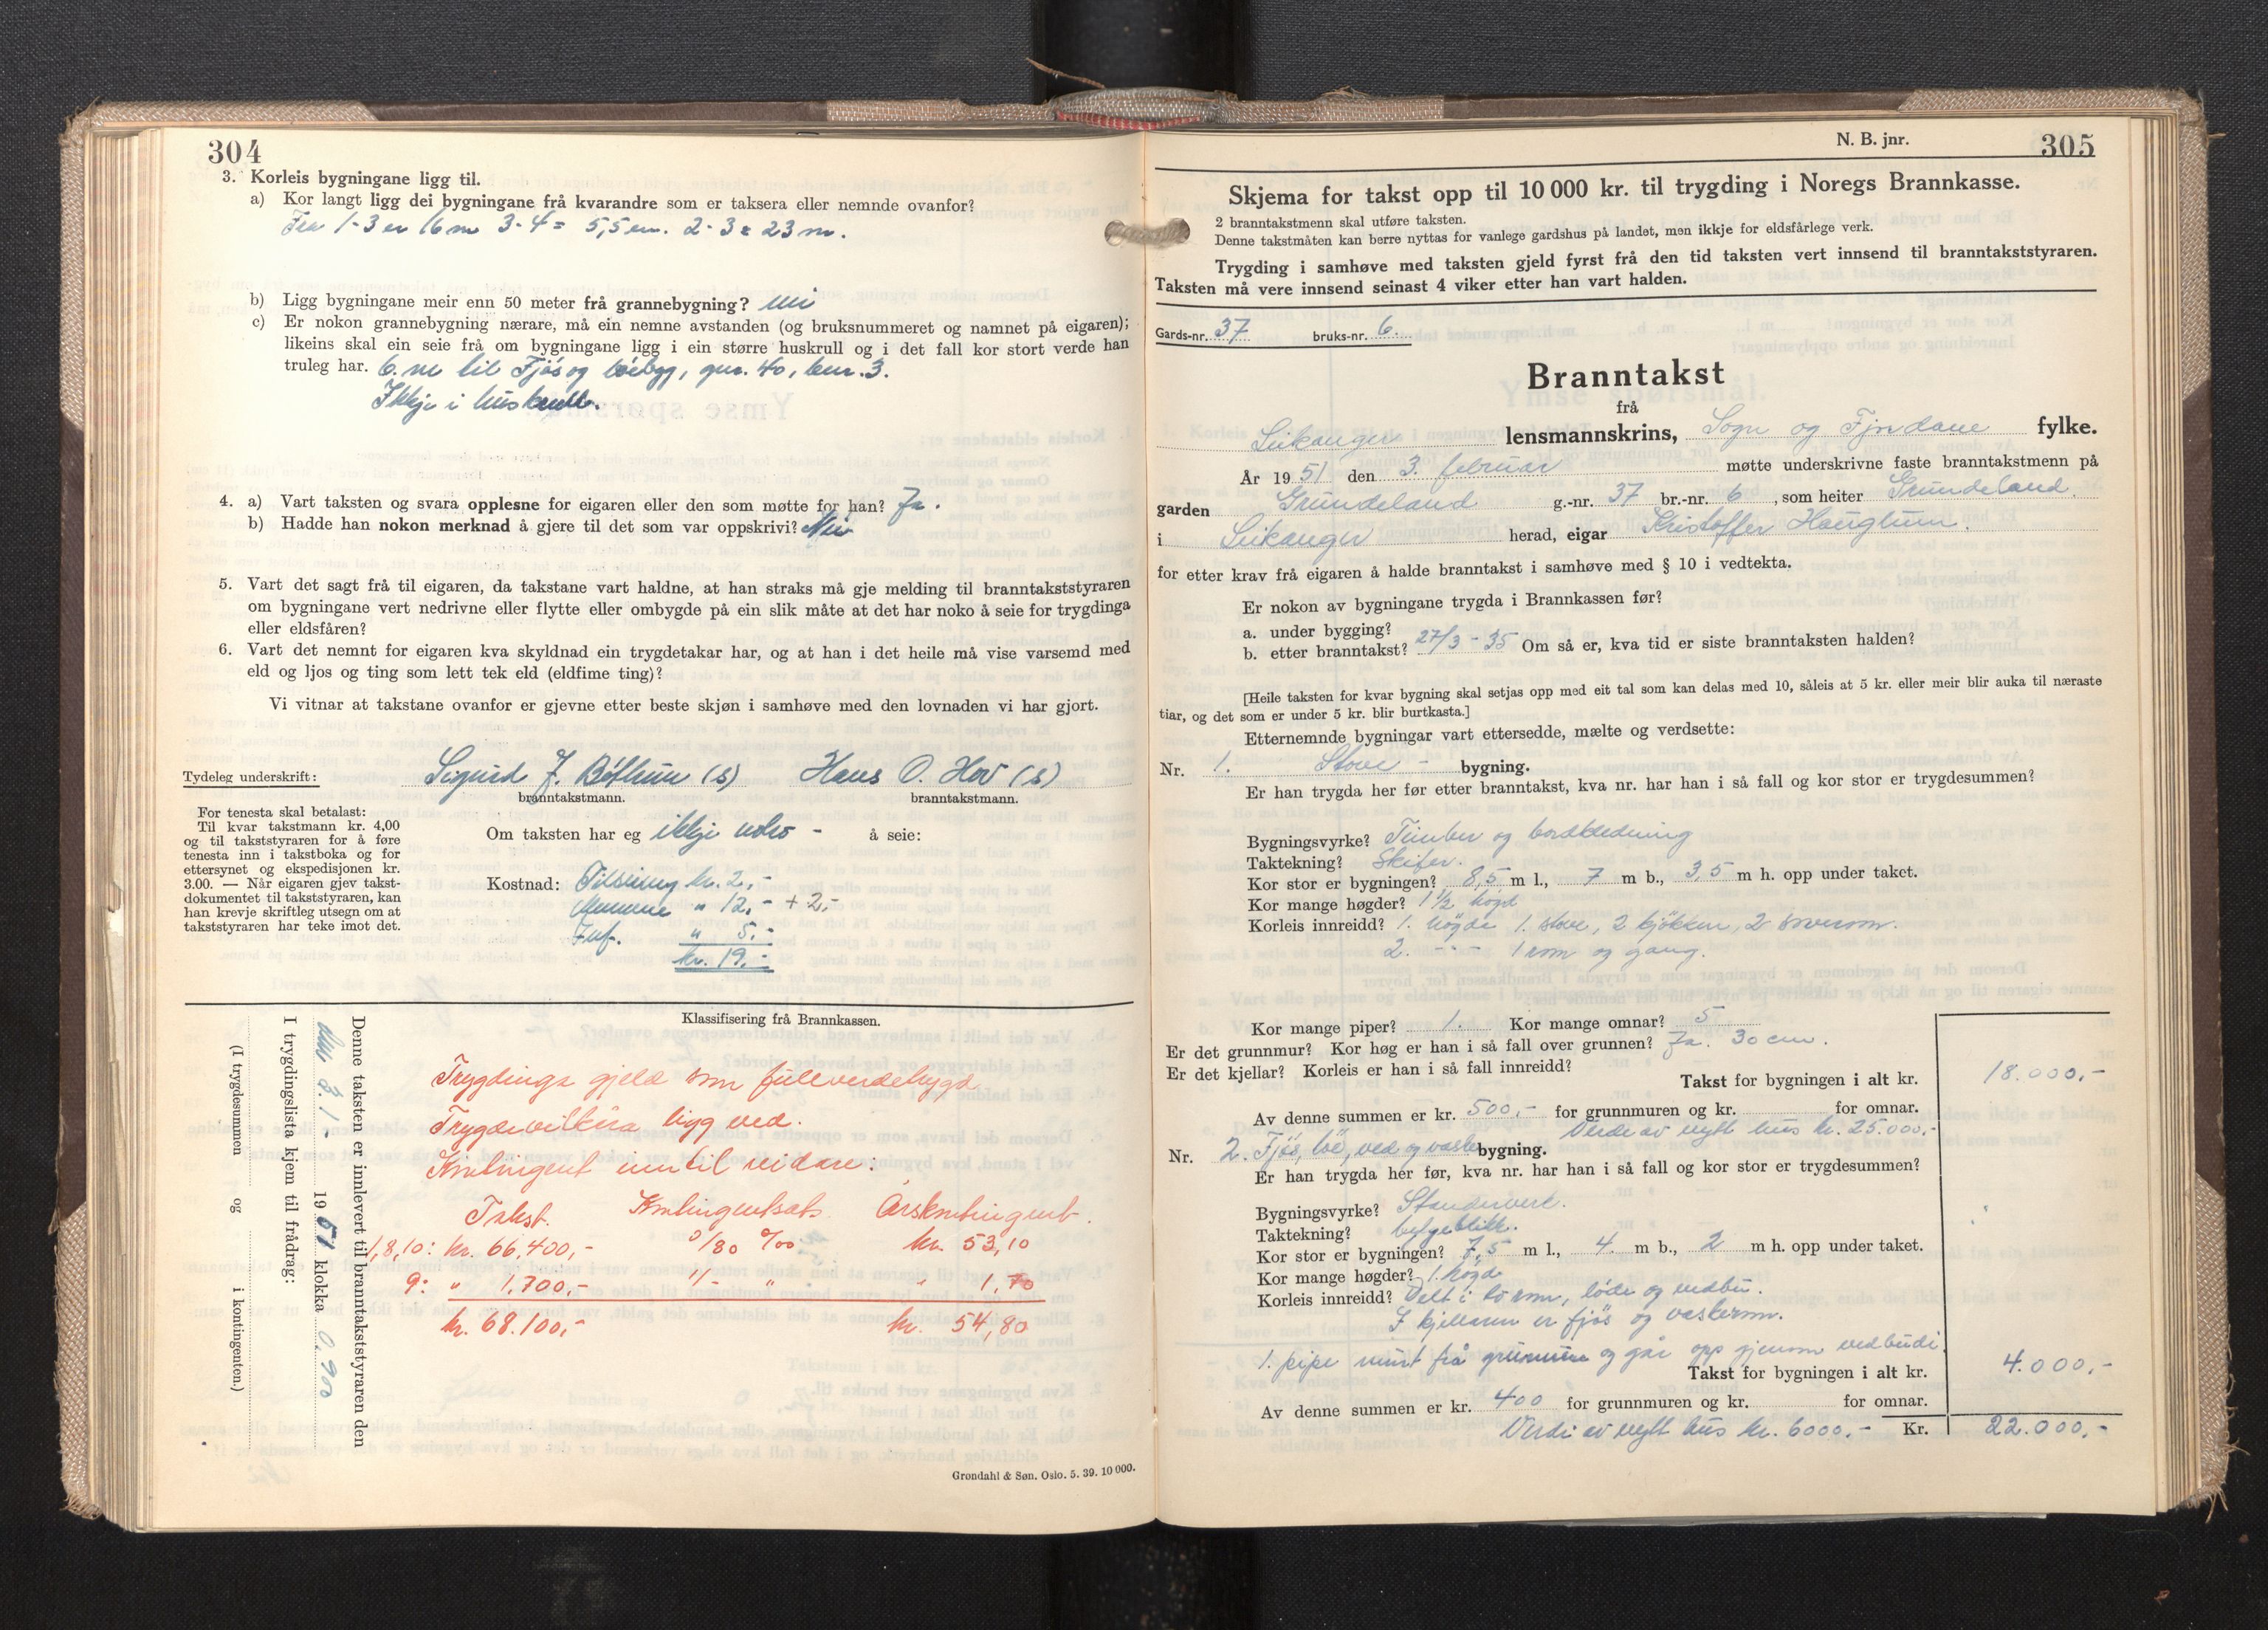 304
3. Korleis bygningane ligg til.
a) Kor langt ligg dei bygningane frå kvarandre som er taksera eller nemnde ovanfor?
Fra 1-3 er 16 m 3-4 = 5,5 m. 2-3 = 23 m.
b) Ligg bygningane meir enn 50 meter frå grannebygning? nei
c) Er nokon grannebygning nærare, må ein nemne avstanden (og bruksnummeret og namnet på eigaren);
likeins skal ein seie frå om bygningane ligg i ein større huskrull og i det fall kor stort verde han
truleg har. 6. m til Fjös og löebygg, gnr. 40, bnr. 3.
Ikkje i huskrull.
4. a) Vart taksten og svara opplesne for eigaren eller den som møtte for han? Ja.
b) Hadde han nokon merknad å gjere til det som var oppskrivi? Nei
5. Vart det sagt frå til eigaren, da takstane vart haldne, at han straks må gje melding til branntakststyraren
om bygningane vert nedrivne eller flytte eller ombygde på ein slik måte at det har noko å seie for trygdinga
eller eldsfåren?
6. Vart det nemnt for eigaren kva skyldnad ein trygdetakar har, og at han i det heile må vise varsemd med
eld og ljos og ting som lett tek eld (eldfime ting)?
Vi vitnar at takstane ovanfor er gjevne etter beste skjøn i samhøve med den lovnaden vi har gjort.
Tydeleg underskrift: Sigurd J. Böthun (s) Hans O. Hov (s)
branntakstmann. branntakstmann.
For tenesta skal betalast:
Til kvar takstmann kr. 4,00
og til takststyraren for å føre
tenesta inn i takstboka og for
ettersynet og ekspedisjonen kr.
3.00. — Når eigaren gjev takst-
dokumentet til takststyraren, kan
han krevje skriftleg utsegn om at
takststyraren har teke imot det.
Om taksten har eg ikkje noko - å seie:
Kostnad: Tilseiing kr. 2,-
Mennene " 12,- + 2,-
Inf. " 5,-
kr. 19,-
Klassifisering frå Brannkassen.
Trygdinga gjeld som fulleverdetrygd
Trygdevilkåra ligg ved.
Kontingent inntil vidare:
Takst. Kontingentsats Årskontingent.
1,8,10: kr. 66.400,- 0/80 ‰ kr. 53,10
9: " 1.700,- 1/- " " 1,70
kr. 68.100,- kr. 54,80
Denne taksten er innlevert til branntakststyraren den
3.1 - 1951 klokka 0.900
I trygdingslista kjem til frådrag:
(I trygdesummen og i kontingenten.)
Grøndahl & Søn. Oslo. 5. 39. 10 000.
N. B. jnr. 305
Skjema for takst opp til 10 000 kr. til trygding i Noregs Brannkasse.
2 branntakstmenn skal utføre taksten.
Denne takstmåten kan berre nyttas for vanlege gardshus på landet, men ikkje for eldsfårlege verk.
Trygding i samhøve med taksten gjeld fyrst frå den tid taksten vert innsend til branntakststyraren.
Taksten må vere innsend seinast 4 viker etter han vart halden.
Gards-nr. 37 bruks-nr. 6.
Branntakst
frå
Leikanger lensmannskrins, Sogn og Fjordane fylke.
År 1951 den 3. februar møtte underskrivne faste branntakstmenn på
garden Grundeland g.-nr. 37 br.-nr. 6, som heiter Grundeland.
i Leikanger herad, eigar Kristoffer Hauglum.
for etter krav frå eigaren å halde branntakst i samhøve med § 10 i vedtekta.
Er nokon av bygningane trygda i Brannkassen før?
a. under bygging?
b. etter branntakst? 27/3 - 35 Om så er, kva tid er siste branntaksten halden?
[Heile taksten for kvar bygning skal setjas opp med eit tal som kan delas med 10, såleis at 5 kr. eller meir blir auka til næraste
tiar, og det som er under 5 kr. blir burtkasta.]
Etternemnde bygningar vart ettersedde, mælte og verdsette:
Nr. 1. Stove - bygning.
Er han trygda her før etter branntakst, kva nr. har han i så fall og kor stor er trygdesummen?
Bygningsvyrke? Timber og bordkledning
Taktekning? Skifer.
Kor stor er bygningen? 8,5 m l., 7 m b., 3,5 m h. opp under taket.
Kor mange høgder? 1 1/2 högd
Korleis innreidd? 1. högde 1. stove, 2 kjökken, 2 soverom.
2. - - - 1 rom og gang.
Kor mange piper? 1. Kor mange omnar? 5
Er det grunnmur? Kor høg er han i så fall over grunnen? Ja. 30 cm.
Er det kjellar? Korleis er han i så fall innreidd?
Takst for bygningen i alt kr. 18.000,-
Av denne summen er kr. 500,- for grunnmuren og kr. for omnar.
Verde av nytt hus kr. 25.000,-
Nr. 2. Fjös, löe, ved og vaske bygning.
Er han trygda her før, kva nr. har han i så fall og kor stor er trygdesummen?
Bygningsvyrke? Standerverk.
Taktekning? bølgeblikk.
Kor stor er bygningen? 7,5 m l., 4. m b., 2 m h. opp under taket.
Kor mange høgder? 1. högde
Korleis innreidd? Delt i to rom, löde og vedbu.
I kjellaren er fjös og vaskerom.
1. pipe murt frå grunnen og går opp gjenom vedbudi.
Takst for bygningen i alt kr. 4.000,-
Av denne summen er kr. 400 for grunnmuren og kr. for omnar.
Verde av nytt hus kr. 6000.- Kr. 22.000,-